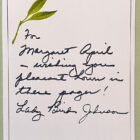 For
Margaret April
- wishing you
pleasant hours in
these pages!
Lady Bird Johnson